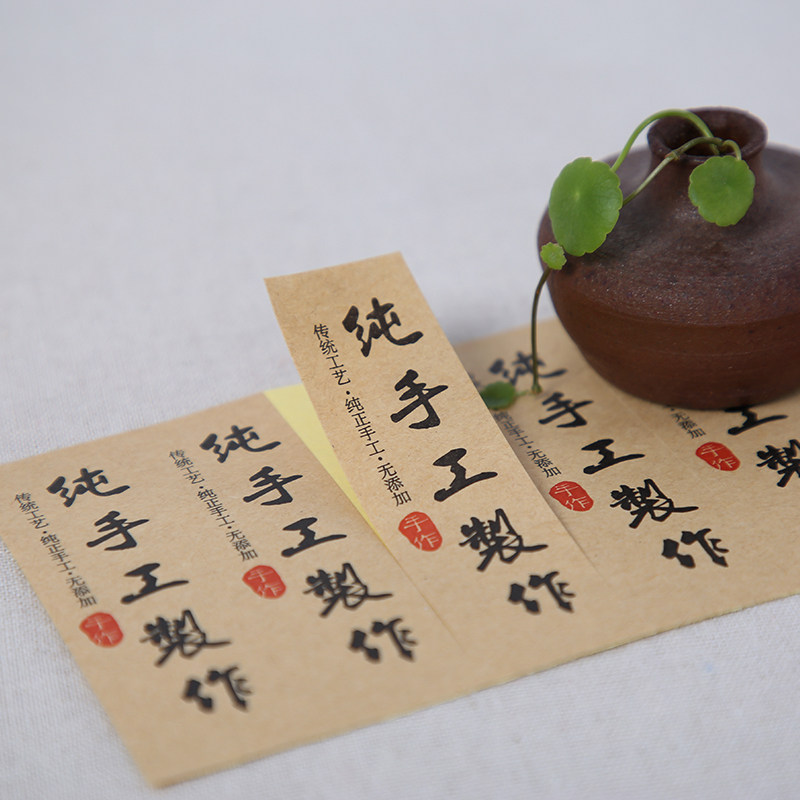 纯手工製作
传统工艺·纯正手工·无添加
手作
纯手工製作
传统工艺·纯正手工·无添加
手作
纯手工製作
传统工艺·纯正手工·无添加
手作
纯手工製作
正手工·无添加
手作
工製
手作